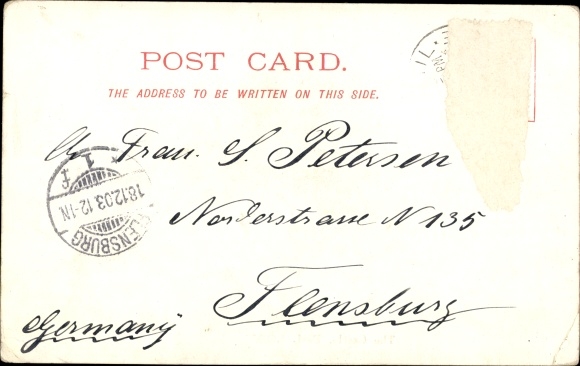 POST CARD.
THE ADDRESS TO BE WRITTEN ON THIS SIDE.
An Frau. S. Petersen
Norderstrasse N 135
Flensburg
Germany
FLENSBURG
18.12.03.12-1N.
1
f